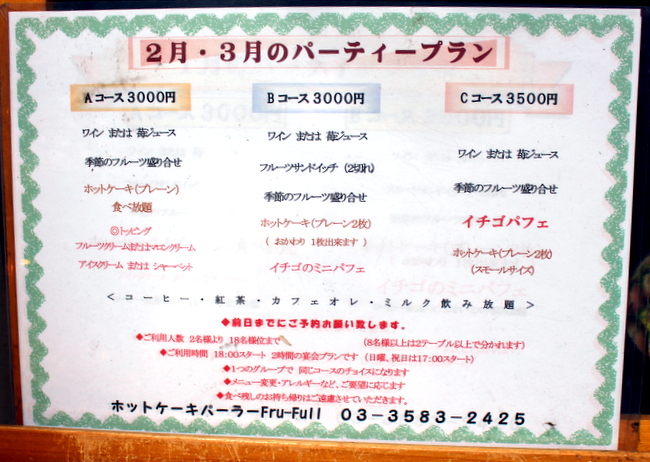 2月・3月のパーティープラン
Aコース3000円
ワイン または 苺ジュース
季節のフルーツ盛り合せ
ホットケーキ(プレーン)
食べ放題
◎トッピング
フルーツクリームまたはマロンクリーム
アイスクリーム または シャーベット
Bコース3000円
ワイン または 苺ジュース
フルーツサンドイッチ (2切れ)
季節のフルーツ盛り合せ
ホットケーキ(プレーン2枚)
( おかわり 1枚出来ます )
イチゴのミニパフェ
Cコース3500円
ワイン または 苺ジュース
季節のフルーツ盛り合せ
イチゴパフェ
ホットケーキ(プレーン2枚)
(スモールサイズ)
<コーヒー・紅茶・カフェオレ・ミルク飲み放題>
◆前日までにご予約お願い致します。
◆ご利用人数 2名様より 18名様位まで (8名様以上は2テーブル以上で分かれます)
◆ご利用時間 18:00スタート 2時間の宴会プランです (日曜、祝日は17:00スタート)
◆1つのグループで 同じコースのチョイスになります
◆メニュー変更・アレルギーなど、ご要望に応じます
◆食べ残しのお持ち帰りはご遠慮させていただきます。
ホットケーキパーラーFru-Full 03-3583-2425